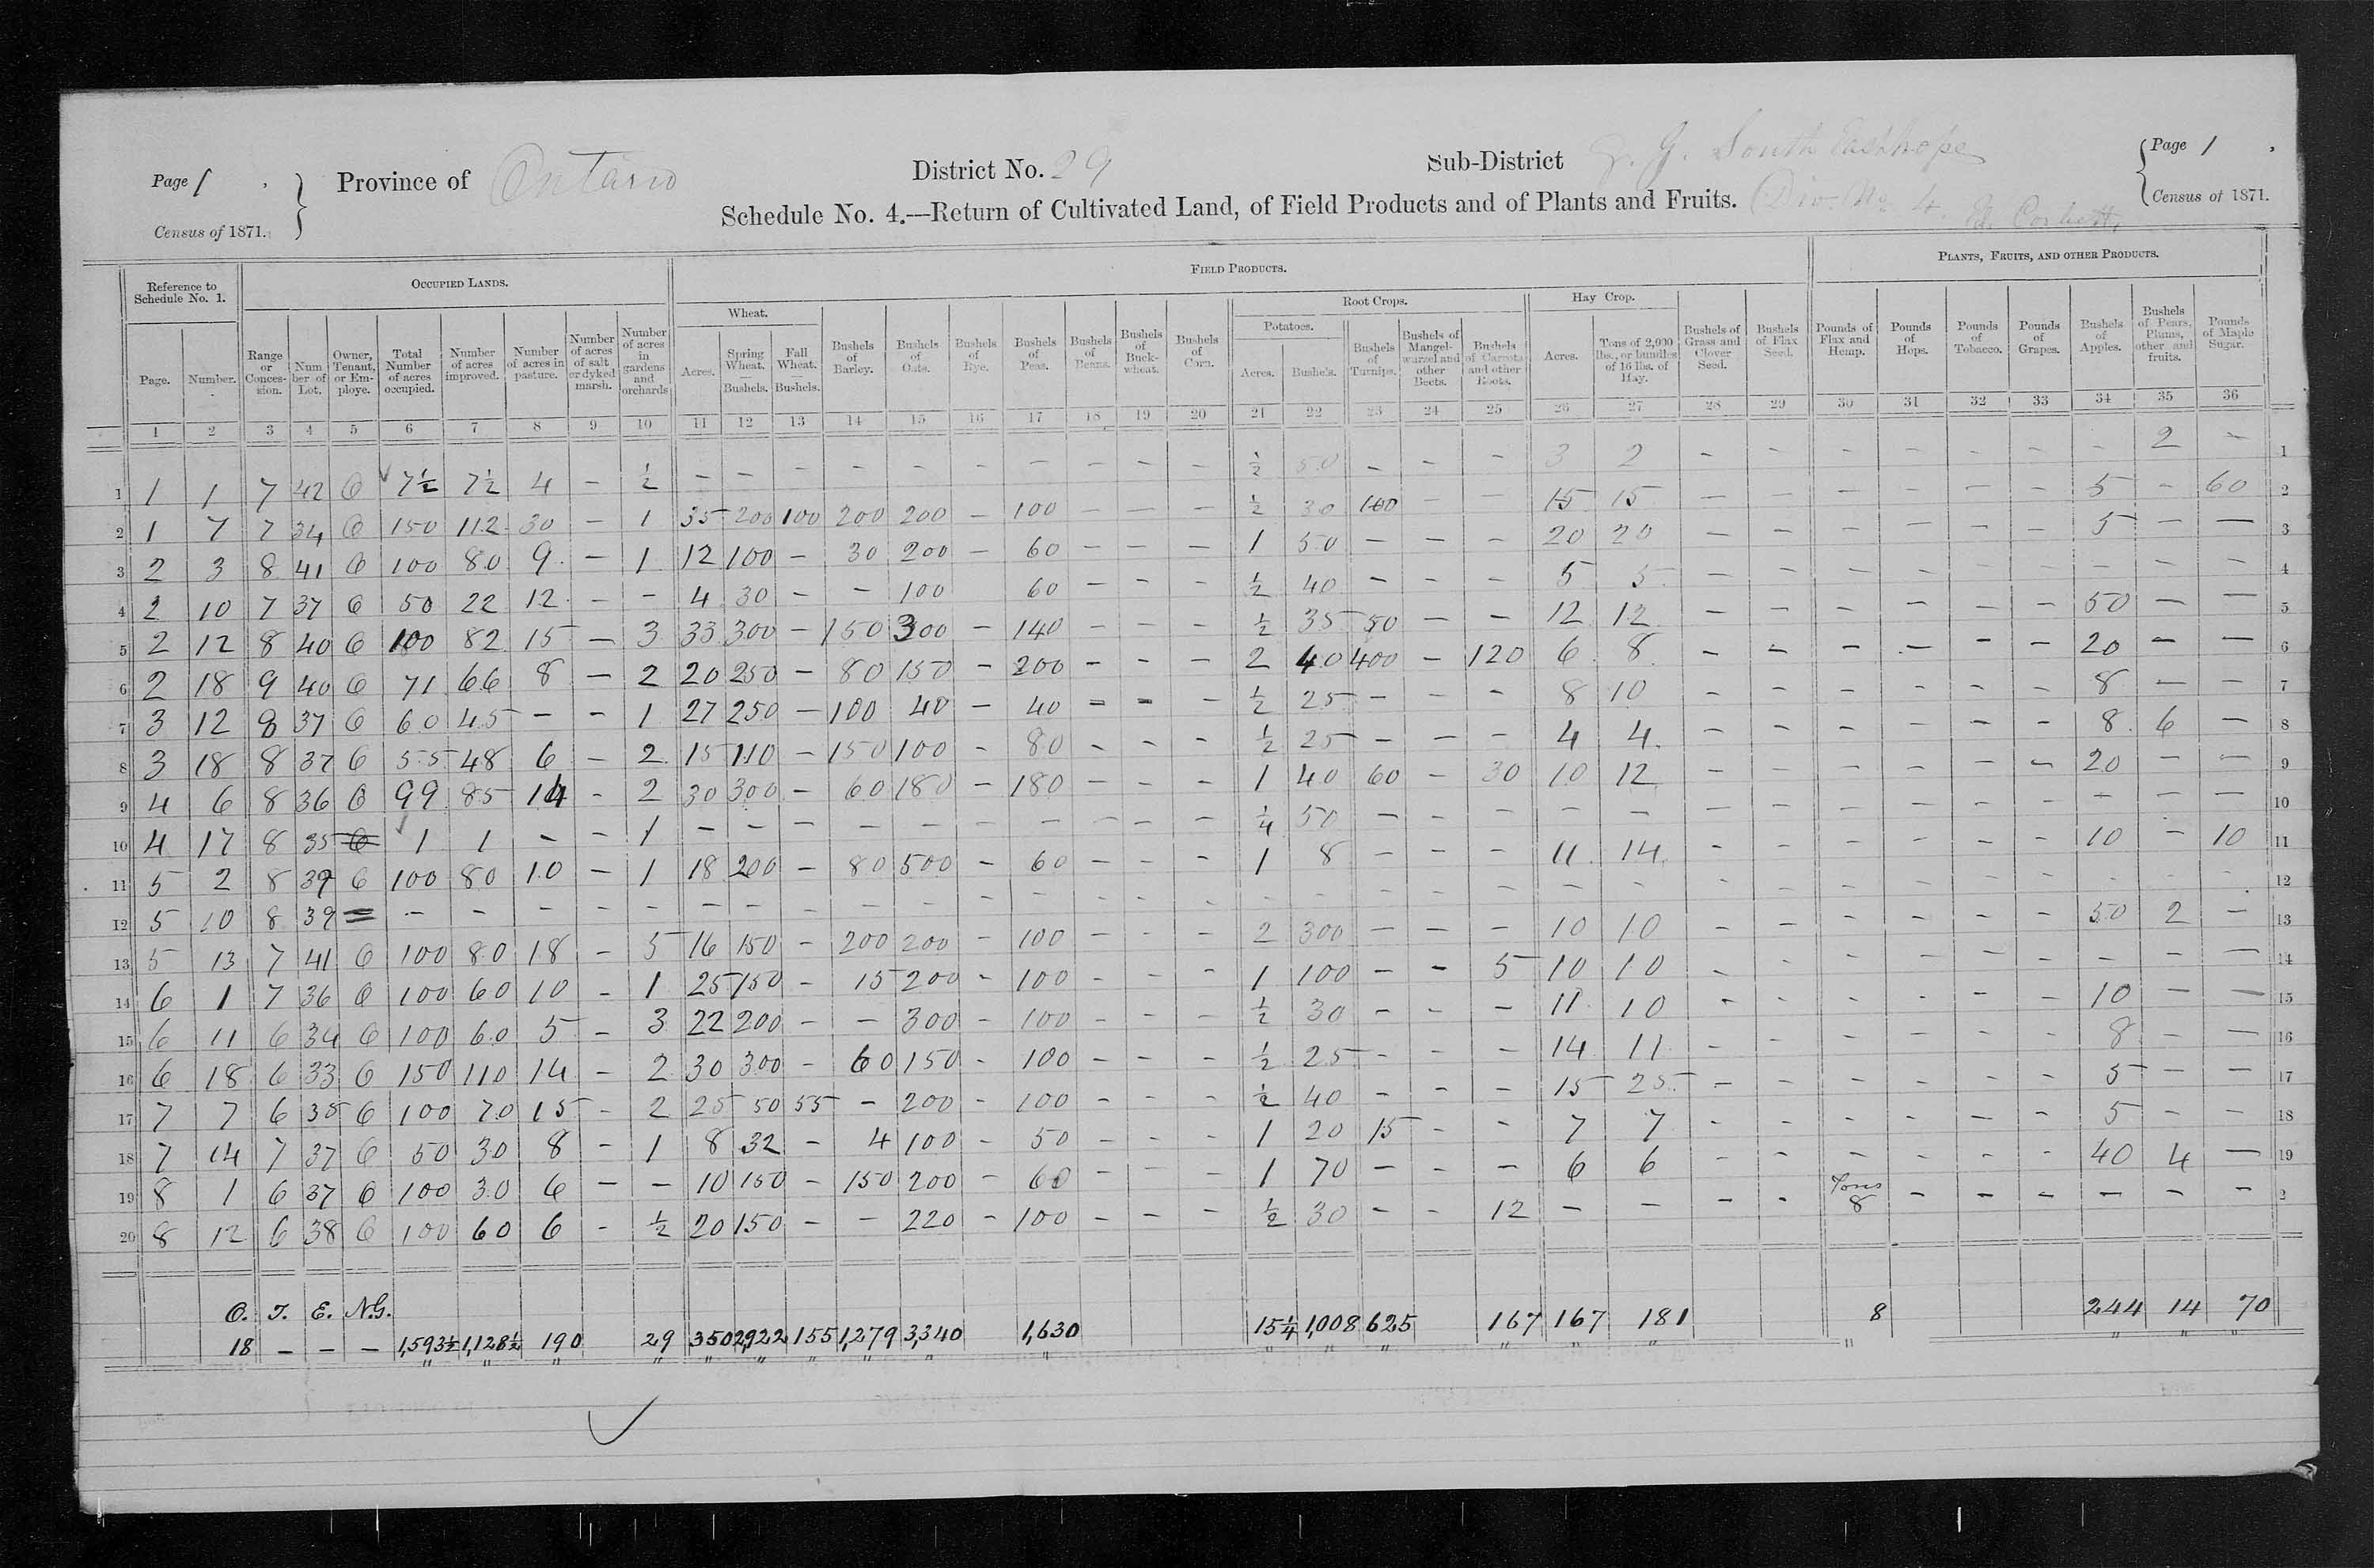 Page 1
Province of Ontario
District No. 29
Sub-District G. G. South Easthope
Page 1
Census of 1871.
Schedule No. 4.—Return of Cultivated Land, of Field Products and of Plants and Fruits.
Div. No 4. Corbett,
Census of 1871.
Reference to Schedule No. 1.
Occupied Lands.
Field Products.
Plants, Fruits, and other Products.
Wheat.
Root Crops.
Potatoes.
Hay Crop.
Page. Number. Range or Conces-sion. Num ber of Lot. Owner, Tenant, or Em-ploye. Total Number of acres occupied. Number of acres improved. Number of acres in pasture. Number of acres of salt or dyked marsh. Number of acres in gardens and orchards Acres. Spring Wheat. — Bushels. Fall Wheat. — Bushels. Bushels of Barley. Bushels of Oats. Bushels of Rye. Bushels of Peas. Bushels of Beans. Bushels of Buck-wheat. Bushels of Corn. Acres. Bushels. Bushels of Turnips. Bushels of Mangel-wurzel and other Beets. Bushels of Carrots and other Roots. Acres. Tons of 2,000 lbs., or bundles of 16 lbs. of Hay. Bushels of Grass and Clover Seed. Bushels of Flax Seed. Pounds of Flax and Hemp. Pounds of Hops. Pounds of Tobacco. Pounds of Grapes. Bushels of Apples. Bushels of Pears, Plums, other and fruits. Pounds of Maple Sugar.
1 2 3 4 5 6 7 8 9 10 11 12 13 14 15 16 17 18 19 20 21 22 23 24 25 26 27 28 29 30 31 32 33 34 35 36
1 1 1 7 42 O √ 7½ 7½ 4 – ½ – – – – – – – – – – ½ 50 – – – 3 2 – – – – – – – 2 – 1
2 1 7 7 34 O 150 112 30 – 1 35 200 100 200 200 – 100 – – – ½ 30 100 – – 15 15 – – – – – – 5 – 60 2
3 2 3 8 41 O 100 80 9 – 1 12 100 – 30 200 – 60 – – – 1 50 – – – 20 20 – – – – – – 5 – – 3
4 2 10 7 37 O 50 22 12 – – 4 30 – – 100 60 – – – ½ 40 – – – 5 5 – – – – – – – – – 4
5 2 12 8 40 O 100 82 15 – 3 33 300 – 150 300 – 140 – – – ½ 35 50 – – 12 12 – – – – – – 50 – – 5
6 2 18 9 40 O 71 66 8 – 2 20 250 – 80 150 – 200 – – – 2 40 400 – 120 6 8 – – – – – – 20 – – 6
7 3 12 8 37 O 60 45 – – 1 27 250 – 100 40 – 40 – – – ½ 25 – – – 8 10 – – – – – – 8 – – 7
8 3 18 8 37 O 55 48 6 – 2 15 110 – 150 100 – 80 – – – ½ 25 – – – 4 4 – – – – – – 8 6 – 8
9 4 6 8 36 O 99 85 14 – 2 30 300 – 60 180 – 180 – – – 1 40 60 – 30 10 12 – – – – – – 20 – – 9
10 4 17 8 35 O √ 1 1 – – 1 – – – – – – – – – – ¼ 50 – – – – – – – – – – – – – – 10
11 5 2 8 39 O 100 80 10 – 1 18 200 – 80 500 – 60 – – – 1 8 – – – 11 14 – – – – – – 10 – 10 11
12 5 10 8 39 = – – – – – – – – – – – – – – – – – – – – – – – – – – – – – – – 12
13 5 13 7 41 O 100 80 18 – 5 16 150 – 200 200 – 100 – – – 2 300 – – – 10 10 – – – – – – 50 2 – 13
14 6 1 7 36 O 100 60 10 – 1 25 150 – 15 200 – 100 – – – 1 100 – – 5 10 10 – – – – – – – – – 14
15 6 11 6 34 O 100 60 5 – 3 22 200 – – 300 – 100 – – – ½ 30 – – – 11 10 – – – – – – 10 – – 15
16 6 18 6 33 O 150 110 14 – 2 30 300 – 60 150 – 100 – – – ½ 25 – – – 14 11 – – – – – – 8 – – 16
17 7 7 6 35 O 100 70 15 – 2 25 50 55 – 200 – 100 – – – ½ 40 – – – 15 25 – – – – – – 5 – – 17
18 7 14 7 37 O 50 30 8 – 1 8 32 – 4 100 – 50 – – – 1 20 15 – – 7 7 – – – – – – 5 – – 18
19 8 1 6 37 O 100 30 6 – – 10 150 – 150 200 – 60 – – – 1 70 – – – 6 6 – – – – – – 40 4 – 19
20 8 12 6 38 O 100 60 6 – ½ 20 150 – – 220 – 100 – – – ½ 30 – – 12 – – – – Tons 8 – – – – – – 2
O. T. E. N.G.
18 – – – 1,593½ 1,128½ 190 29 350 2,922 155 1,279 3,340 1,630 15¼ 1,008 625 167 167 181 8 244 14 70